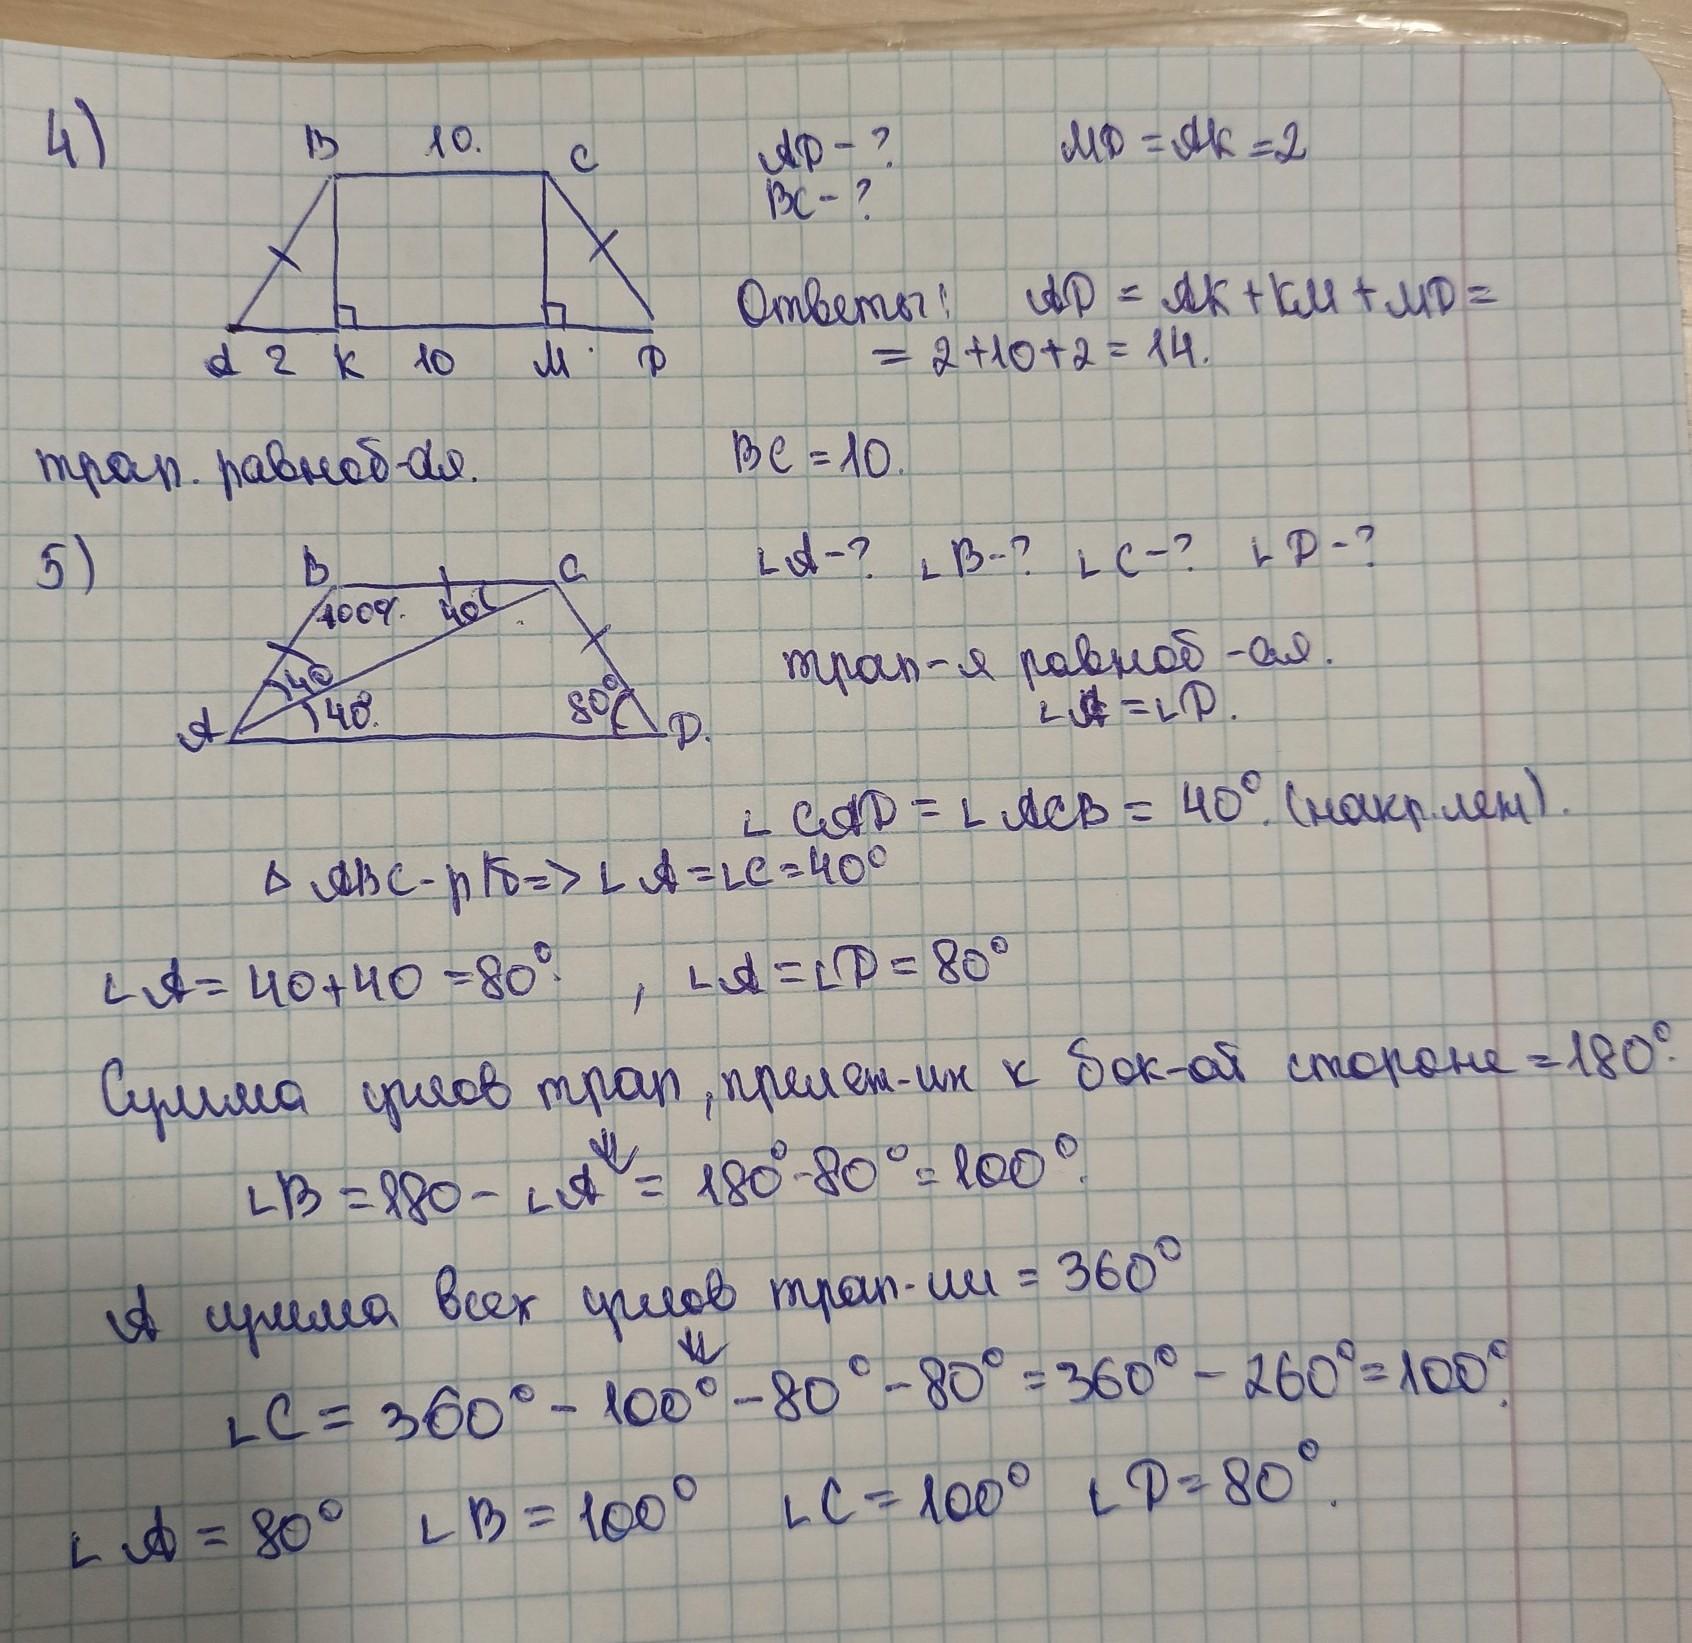 4)
B 10. C
A 2 K 10 M D
AD - ?
BC - ?
MD = AK = 2
Ответы: AD = AK + KM + MD =
= 2 + 10 + 2 = 14.
трап. равноб-ая.
BC = 10.
5)
B C
100°. 40
40
40°.
80°
A D.
∟A - ? ∟B - ? ∟C - ? ∟D - ?
трап-я равноб-ая.
∟A = ∟D.
∟CAD = ∟ACB = 40°. (накр.леж).
Δ ABC - р/б => ∟A = ∟C = 40°
∟A = 40 + 40 = 80°. , ∟A = ∟D = 80°
Сумма углов трап, прилеж-их к бок-ой стороне = 180°.
⇓
∟B = 180 - ∟A = 180° - 80° = 100°.
А сумма всех углов трап-ии = 360°
⇓
∟C = 360° - 100° - 80° - 80° = 360° - 260° = 100°.
∟A = 80° ∟B = 100° ∟C = 100° ∟D = 80°.